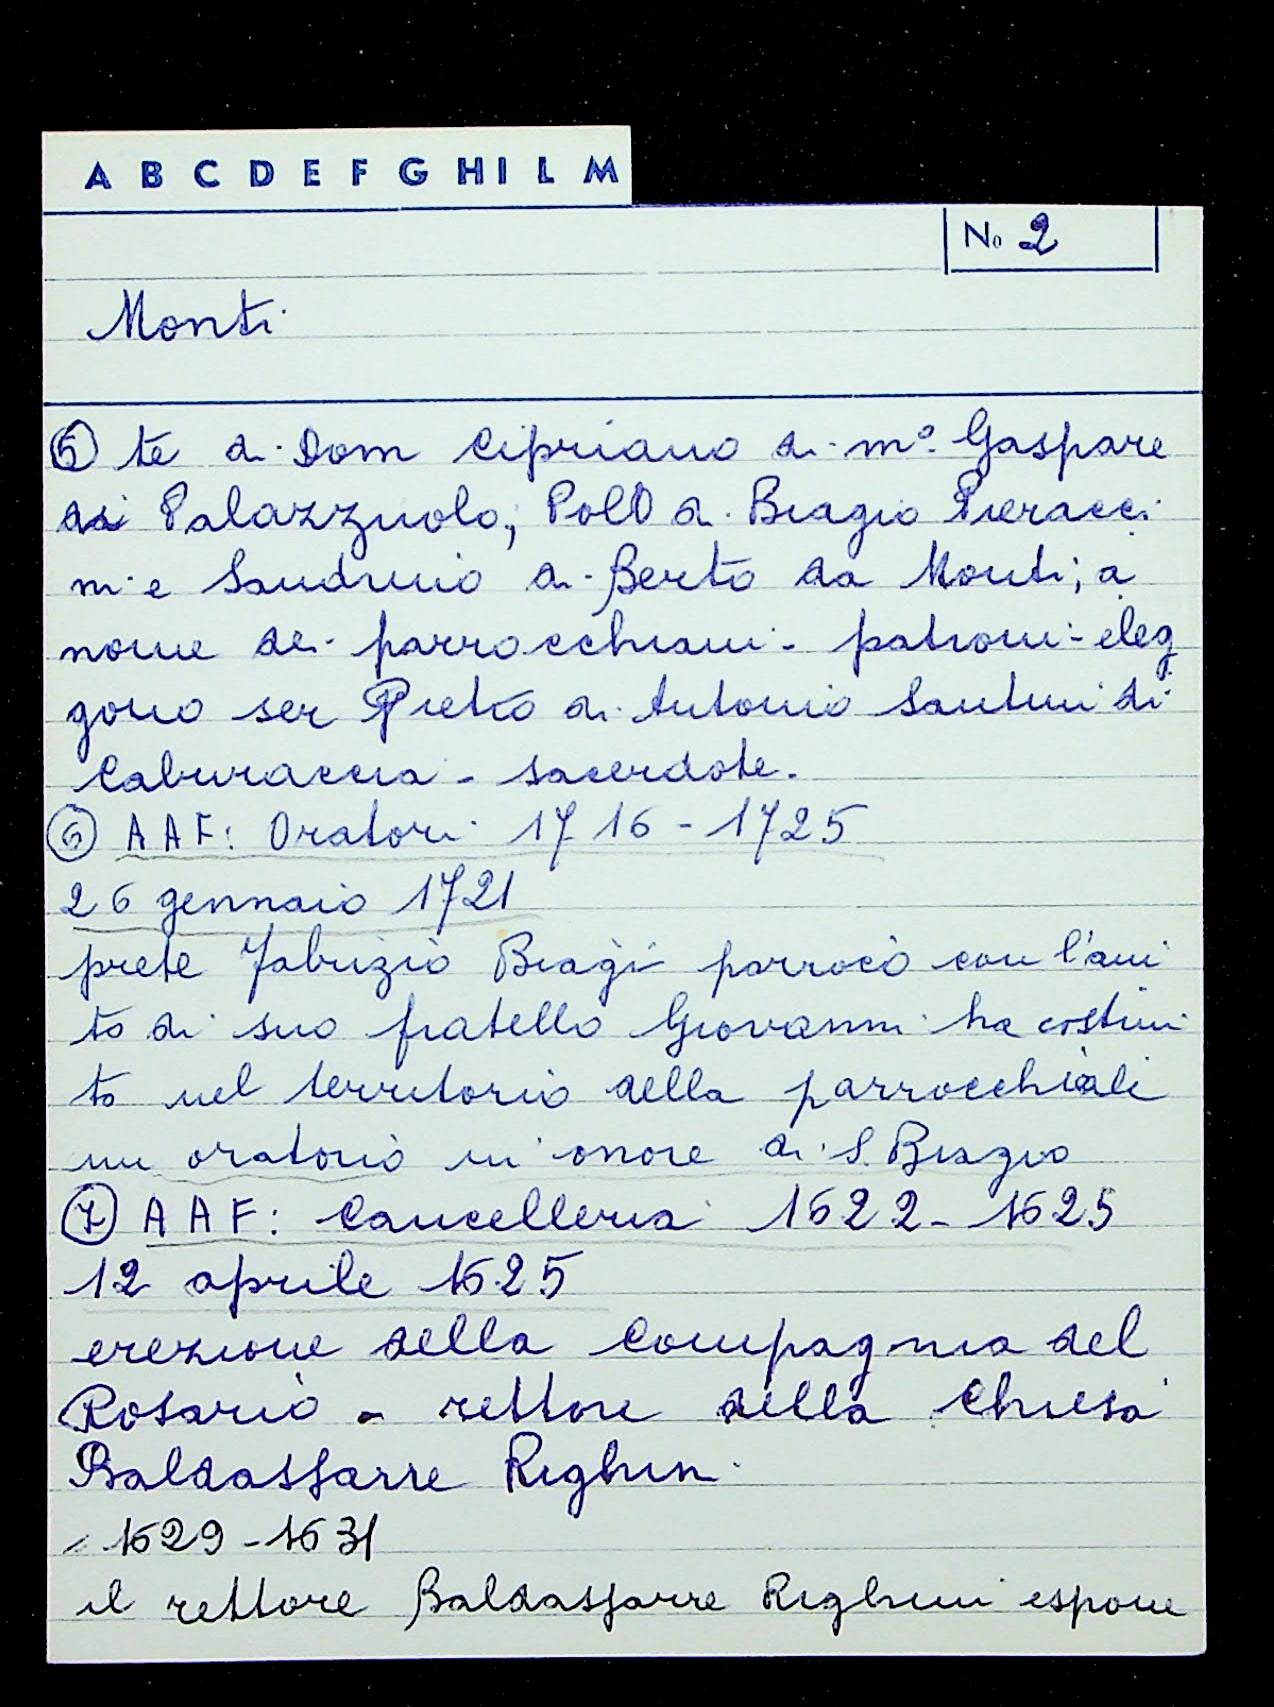 A B C D E F G H I L M
No 2
Monti
5 te di Dom Cipriano di m° Gaspare
di Palazzuolo, Polo di Biagio Pieracci
ni e Sandrino di Berto da Monti; a
nome dei parrocchiani - patroni - eleg
gono ser Pietro di Antonio Santini di
Caburaccia - sacerdote.
6 AAF: Oratori 1716 - 1725
26 gennaio 1721
prete Fabrizio Biagi parroco con l'aiu
to di suo fratello Giovanni ha costrui
to nel territorio della parrocchiali
un oratorio in onore di S. Biagio
7 AAF: Cancelleria 1622 - 1625
12 aprile 1625
erezione della Compagnia del
Rosario - rettore della Chiesa
Baldassarre Righini
1629 - 1631
il rettore Baldassarre Righini espone